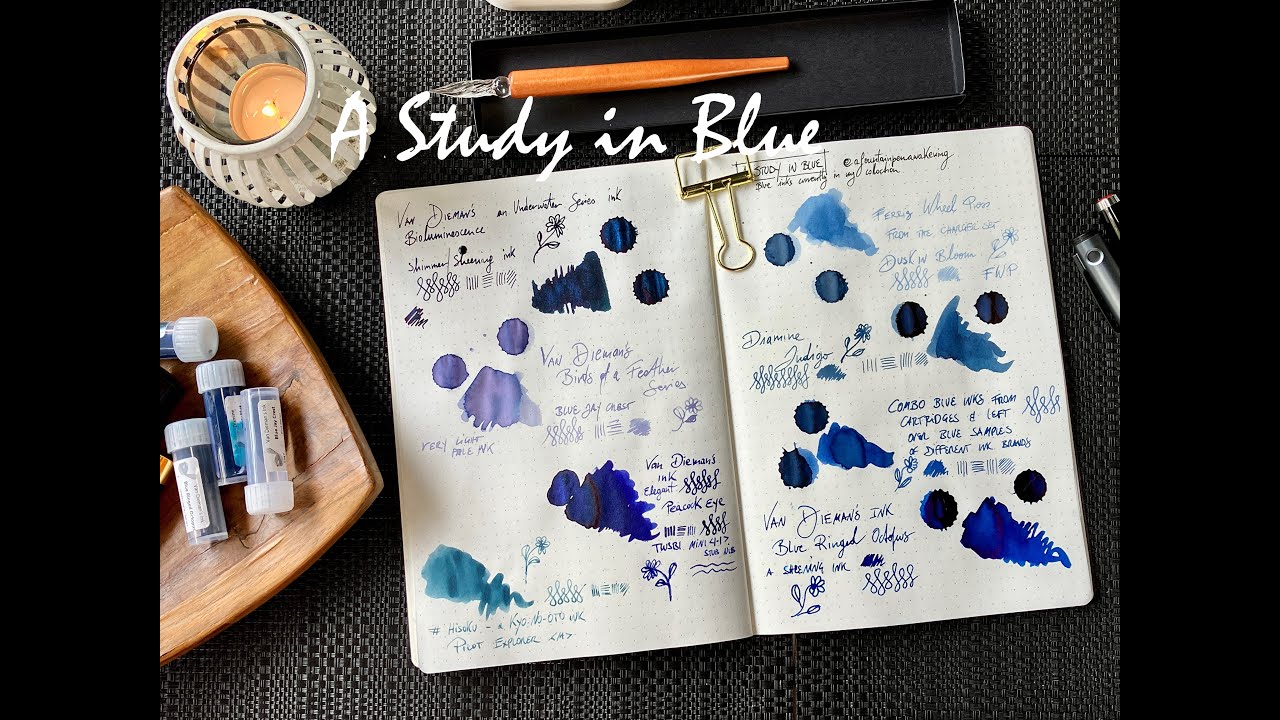 A Study in Blue
Van Dieman's an Underwater Series ink
Bioluminescence
Shimmer/Sheening ink
Van Dieman's
Birds of a Feather
Series
Blue Jay Crest
Very light
pale ink
Van Dieman's
ink
Elegant
Peacock Eye
TWSBI Mini
Stub Nib
# Hisoku - a Kyo-No-Oto ink
Pilot Explorer <M>
Study in Blue @afountainpenawakening
Blue inks currently in my collection
Ferris Wheel Press
from the Charger Set
Dusk in Bloom
FWP
Diamine
Indigo
Combo blue inks from
cartridges & left
over blue samples
of different ink brands
Van Dieman's Ink
Blue Ringed Octopus
a sheening ink
Van Dieman's Ink
Blue Ringed Octopus
Van Dieman's Ink
Blue Jay Crest